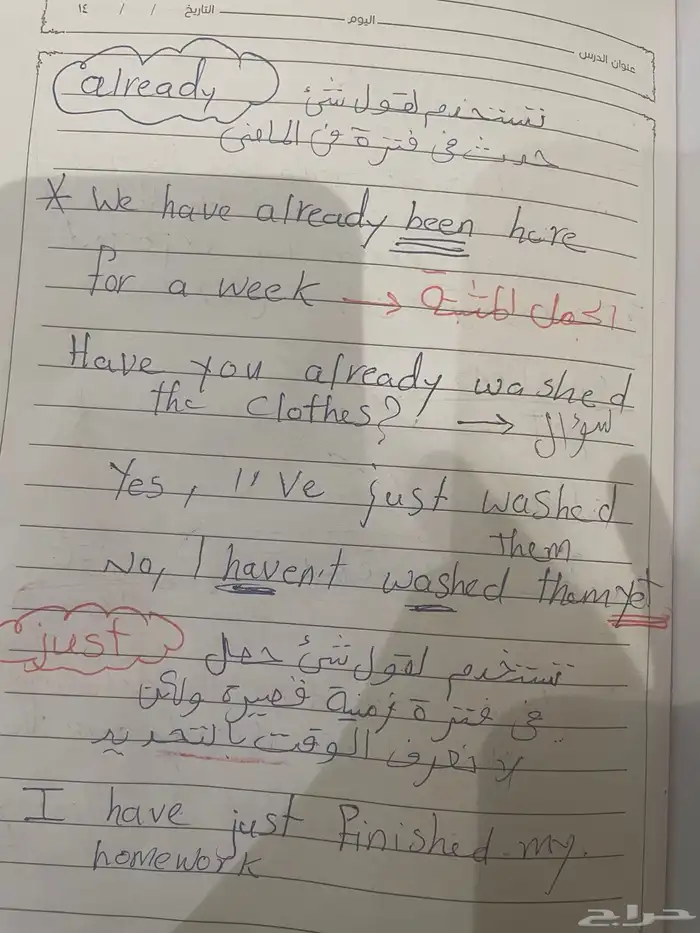 التاريخ / / ١٤
اليوم
عنوان الدرس
already نستخدم لقول شئ
حدث في فترة في الماضى
* We have already been here
for a week → الجمل المثبتة
Have you already washed
the clothes? → سؤال
Yes, I've just washed
them
No, I haven't washed them yet
just نستخدم لقول شئ حصل
في فترة زمنية قصيرة ولكن
لا نعرف الوقت بالتحديد
I have just finished my
homework
حراج